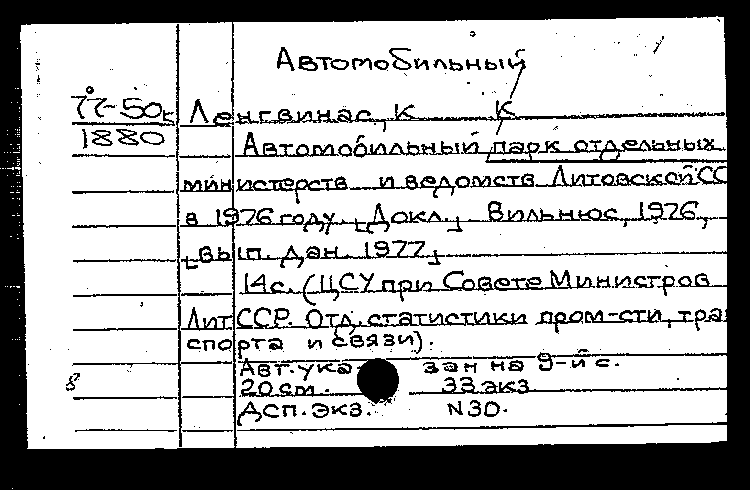 Автомобильный
77-50к Ленгвинас, К К
1880 Автомобильный парк отдельных
министерств и ведомств Литовской СС
в 1976 году. [Докл.] Вильнюс, 1976,
[вып. дан. 1977]
14с. (ЦСУ при Совете Министров
Лит ССР. Отд. статистики пром-сти, тран
спорта и связи).
Авт. ука зан на 9-й с.
8 20 см. 33 экз
ДСП. экз. N30.